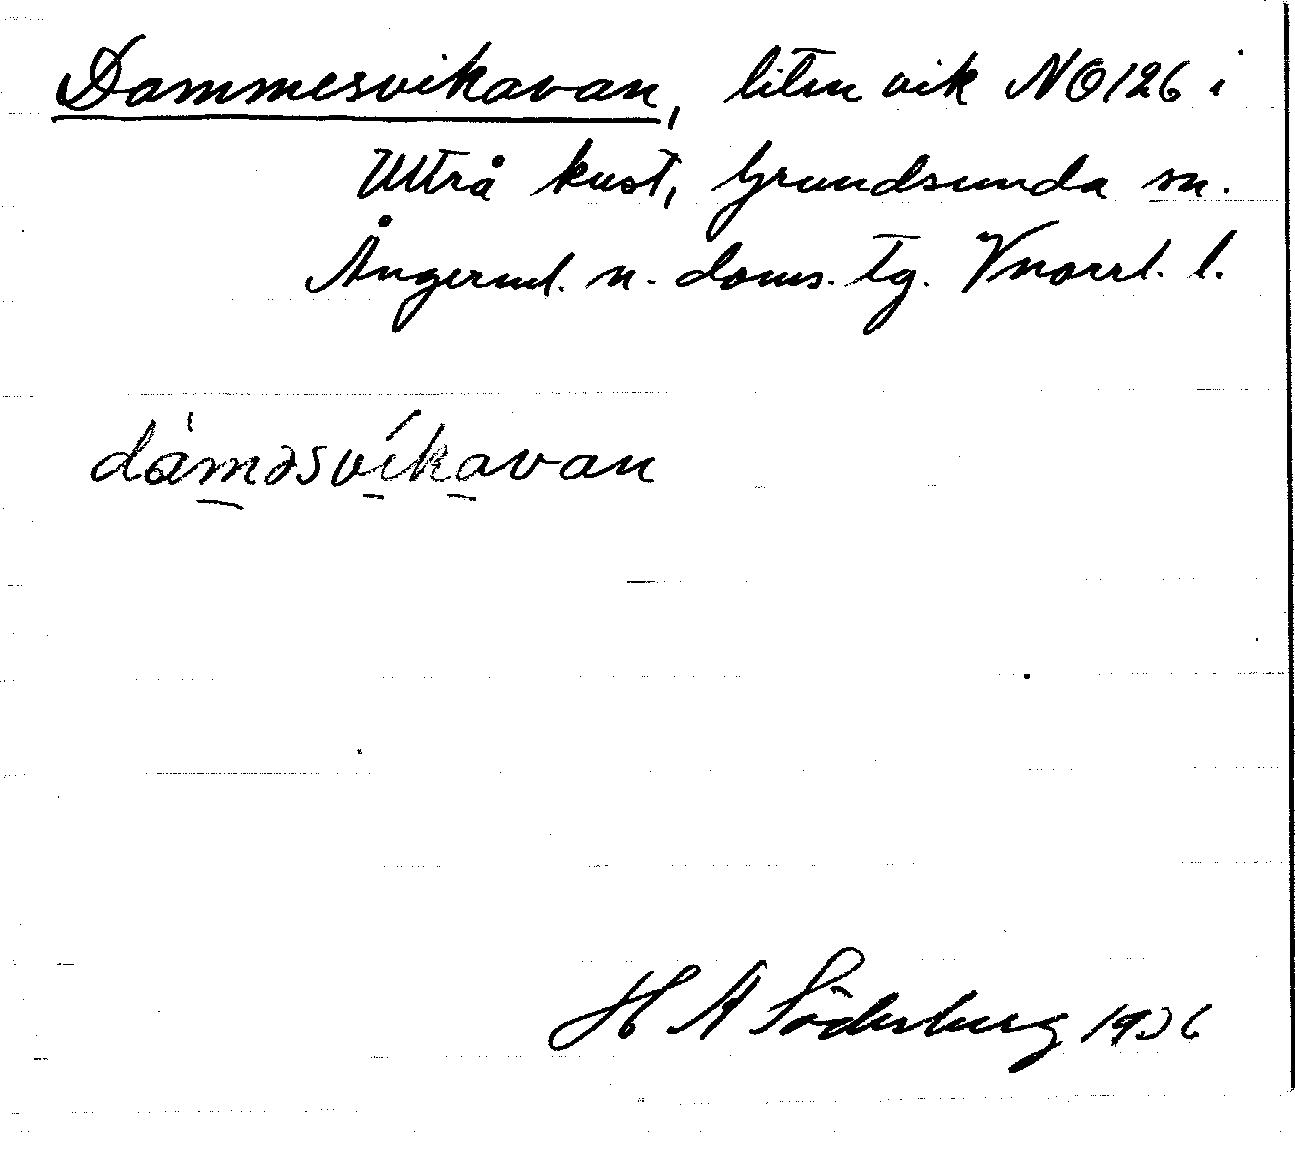 Dammesvikavan, liten vik NO126 i
Utträ kust, Grundsunda sn.
Ångerml. n. doms. tg. Vnorrl. l.
dáməsvíkavan
H A Söderberg 1936